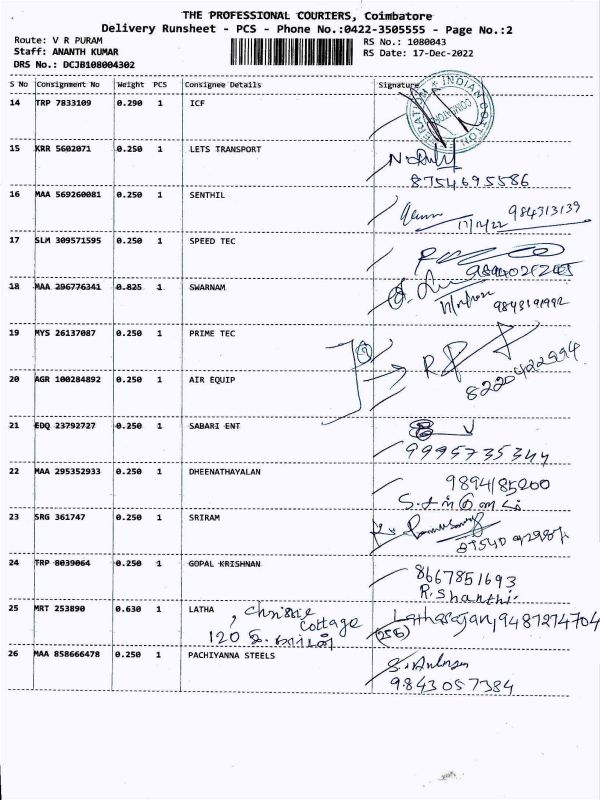 THE PROFESSIONAL COURIERS, Coimbatore
Delivery Runsheet - PCS - Phone No.:0422-3505555 - Page No.:2
Route: V R PURAM
Staff: ANANTH KUMAR
DRS No.: DCJB108004302
RS No.: 1080043
RS Date: 17-Dec-2022
S No Consignment No Weight PCS Consignee Details Signature
14 TRP 7833109 0.290 1 ICF
INDIAN COTTON
15 KRR 5602071 0.250 1 LETS TRANSPORT
8754695586
16 MAA 569260081 0.250 1 SENTHIL
17/12/22 984313139
17 SLM 309571595 0.250 1 SPEED TEC
18 MAA 296776341 0.825 1 SWARNAM
9843191992
19 MYS 26137087 0.250 1 PRIME TEC
20 AGR 100284892 0.250 1 AIR EQUIP
8220422994
21 EDQ 23792727 0.250 1 SABARI ENT
9995735344
22 MAA 295352933 0.250 1 DHEENATHAYALAN
9894185200
23 SRG 361747 0.250 1 SRIRAM
24 TRP 8039064 0.250 1 GOPAL KRISHNAN
8667851693
R. Shanthi.
25 MRT 253890 0.630 1 LATHA , Chrissie cottage Latharajan, 9487274704
120 (256)
26 MAA 858666478 0.250 1 PACHIYANNA STEELS
9843057384